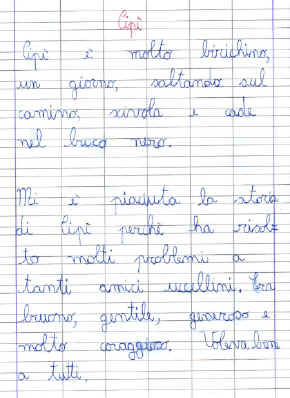 Cipì
Cipì è molto birichino,
un giorno, saltando sul
camino, scivola e cade
nel buco nero.
Mi è piaciuta la storia
di Cipì perché ha risol=
to molti problemi a
tanti amici uccellini. Era
bruono, gentile, generoso e
molto coraggioso. Voleva bene
a tutti.